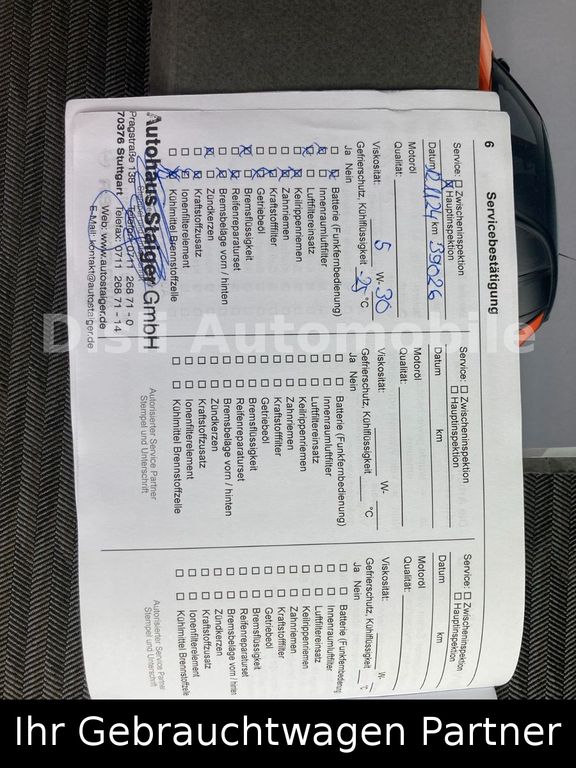 6
Servicebestätigung
Service: ☐ Zwischeninspektion
☒ Hauptinspektion
Datum km 39026
Motoröl
Qualität:
Viskosität: 5 W-30
Gefrierschutz, Kühlflüssigkeit -25 °C
Ja Nein
Batterie (Funkfernbedienung)
Innenraumluftfilter
Luftfiltereinsatz
Keilrippenriemen
Zahnriemen
Kraftstofffilter
Getriebeöl
Bremsflüssigkeit
Reifenreparaturset
Bremsbeläge vorn / hinten
Zündkerzen
Kraftstoffzusatz
Ionenfilterelement
Kühlmittel Brennstoffzelle
Autohaus Staiger GmbH
Pragstraße 139 Telefon: 0711 268 71 - 0
70376 Stuttgart Telefax: 0711 268 71 - 14
Web: www.autostaiger.de
E-Mail: kontakt@autostaiger.de
Service: ☐ Zwischeninspektion
☐ Hauptinspektion
Datum km
Motoröl
Qualität:
Viskosität: W-
Gefrierschutz, Kühlflüssigkeit °C
Ja Nein
☐ ☐ Batterie (Funkfernbedienung)
☐ ☐ Innenraumluftfilter
☐ ☐ Luftfiltereinsatz
☐ ☐ Keilrippenriemen
☐ ☐ Zahnriemen
☐ ☐ Kraftstofffilter
☐ ☐ Getriebeöl
☐ ☐ Bremsflüssigkeit
☐ ☐ Reifenreparaturset
☐ ☐ Bremsbeläge vorn / hinten
☐ ☐ Zündkerzen
☐ ☐ Kraftstoffzusatz
☐ ☐ Ionenfilterelement
☐ ☐ Kühlmittel Brennstoffzelle
Autorisierter Service Partner
Stempel und Unterschrift
Service: ☐ Zwischeninspektion
☐ Hauptinspektion
Datum km
Motoröl
Qualität:
Viskosität: W-
Gefrierschutz, Kühlflüssigkeit °C
Ja Nein
☐ ☐ Batterie (Funkfernbedienung
☐ ☐ Innenraumluftfilter
☐ ☐ Luftfiltereinsatz
☐ ☐ Keilrippenriemen
☐ ☐ Zahnriemen
☐ ☐ Kraftstofffilter
☐ ☐ Getriebeöl
☐ ☐ Bremsflüssigkeit
☐ ☐ Reifenreparaturset
☐ ☐ Bremsbeläge vorn / hinten
☐ ☐ Zündkerzen
☐ ☐ Kraftstoffzusatz
☐ ☐ Ionenfilterelement
☐ ☐ Kühlmittel Brennstoffzelle
Autorisierter Service Partner
Stempel und Unterschrift
Automobile
Ihr Gebrauchtwagen Partner